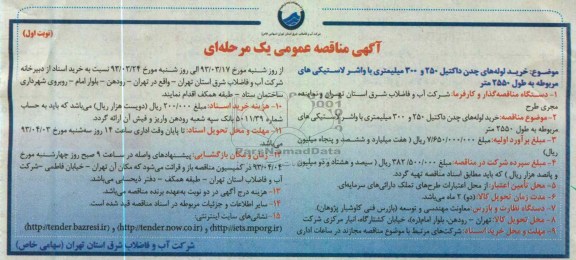 (نوبت اول)
آگهی مناقصه عمومی یک مرحله‌ای
موضوع: خرید لوله‌های چدن داکتیل ۲۵۰ و ۳۰۰ میلیمتری با واشر لاستیکی های
مربوطه به طول ۲۵۵۰ متر
۱- دستگاه مناقصه‌گذار و کارفرما: شرکت آب و فاضلاب شرق استان تهران و نماینده
مجری طرح
۲- موضوع مناقصه: خرید لوله‌های چدن داکتیل ۲۵۰ و ۳۰۰ میلیمتری با واشر لاستیکی های
مربوطه به طول ۲۵۵۰ متر
۳- مبلغ برآورد اولیه: مبلغ ۷/۶۵۰/۰۰۰/۰۰۰ ریال ( هفت میلیارد و ششصد و پنجاه میلیون
ریال)
۴- مبلغ سپرده شرکت در مناقصه: مبلغ ۳۸۲/۵۰۰/۰۰۰ ریال ( سیصد و هشتاد و دو میلیون
و پانصد هزار ریال ) که باید مطابق اسناد مناقصه تهیه گردد.
۵- محل تأمین اعتبار: از محل اعتبارات طرح‌های تملک دارائی‌های سرمایه‌ای
۶- مدت زمان تحویل کالا: (دو) ۲ ماه می‌باشد.
۷- دستگاه نظارت و بازرس: معاونت مهندسی و توسعه (بازرس فنی کاوشیار پژوهان)
۸- محل تحویل کالا: تهران – رودهن، بلوار امام(ره)، خیابان کشتارگاه، انبار مرکزی شرکت
۹- مهلت و محل خرید اسناد: شرکت‌های مرتبط با موضوع مناقصه مجازند در ساعات اداری
از روز شنبه مورخ ۹۳/۰۳/۱۷ الی روز شنبه مورخ ۹۳/۰۳/۲۴ نسبت به خرید اسناد از دبیرخانه
شرکت آب و فاضلاب شرق استان تهران – واقع در تهران – رودهن – بلوار امام – روبروی شهرداری
ساختمان ستاد – طبقه همکف اقدام نمایند.
۱۰- هزینه خرید اسناد: مبلغ ۲۰۰/۰۰۰ ریال (دویست هزار ریال) می‌باشد که باید به حساب
شماره ۵۰۱۱/۳۹ بانک سپه شعبه رودهن واریز و فیش آن ارائه گردد.
۱۱- مهلت و محل تحویل اسناد: تا پایان وقت اداری ساعت ۱۴ روز سه‌شنبه مورخ ۹۳/۰۴/۰۳
می‌باشد.
۱۲- زمان و مکان بازگشایی: پیشنهادهای واصله در ساعت ۹ صبح روز چهارشنبه مورخ
۹۳/۰۴/۰۴ در کمیسیون مناقصه باز و قرائت می‌شود که مکان آن تهران – خیابان فاطمی – شرکت
آب و فاضلاب استان تهران – طبقه همکف – دفتر ذیحسابی می‌باشد.
۱۳- هزینه درج آگهی در دو نوبت به‌عهده برنده مناقصه می‌باشد.
۱۴- سایر اطلاعات و جزئیات مربوطه در اسناد مناقصه قید شده است.
۱۵- نشانی‌های سایت اینترنتی:
(http://iets.mporg.ir) و (http://tender.now.co.ir) و (http://tender.bazresi.ir)
شرکت آب و فاضلاب شرق استان تهران (سهامی خاص)